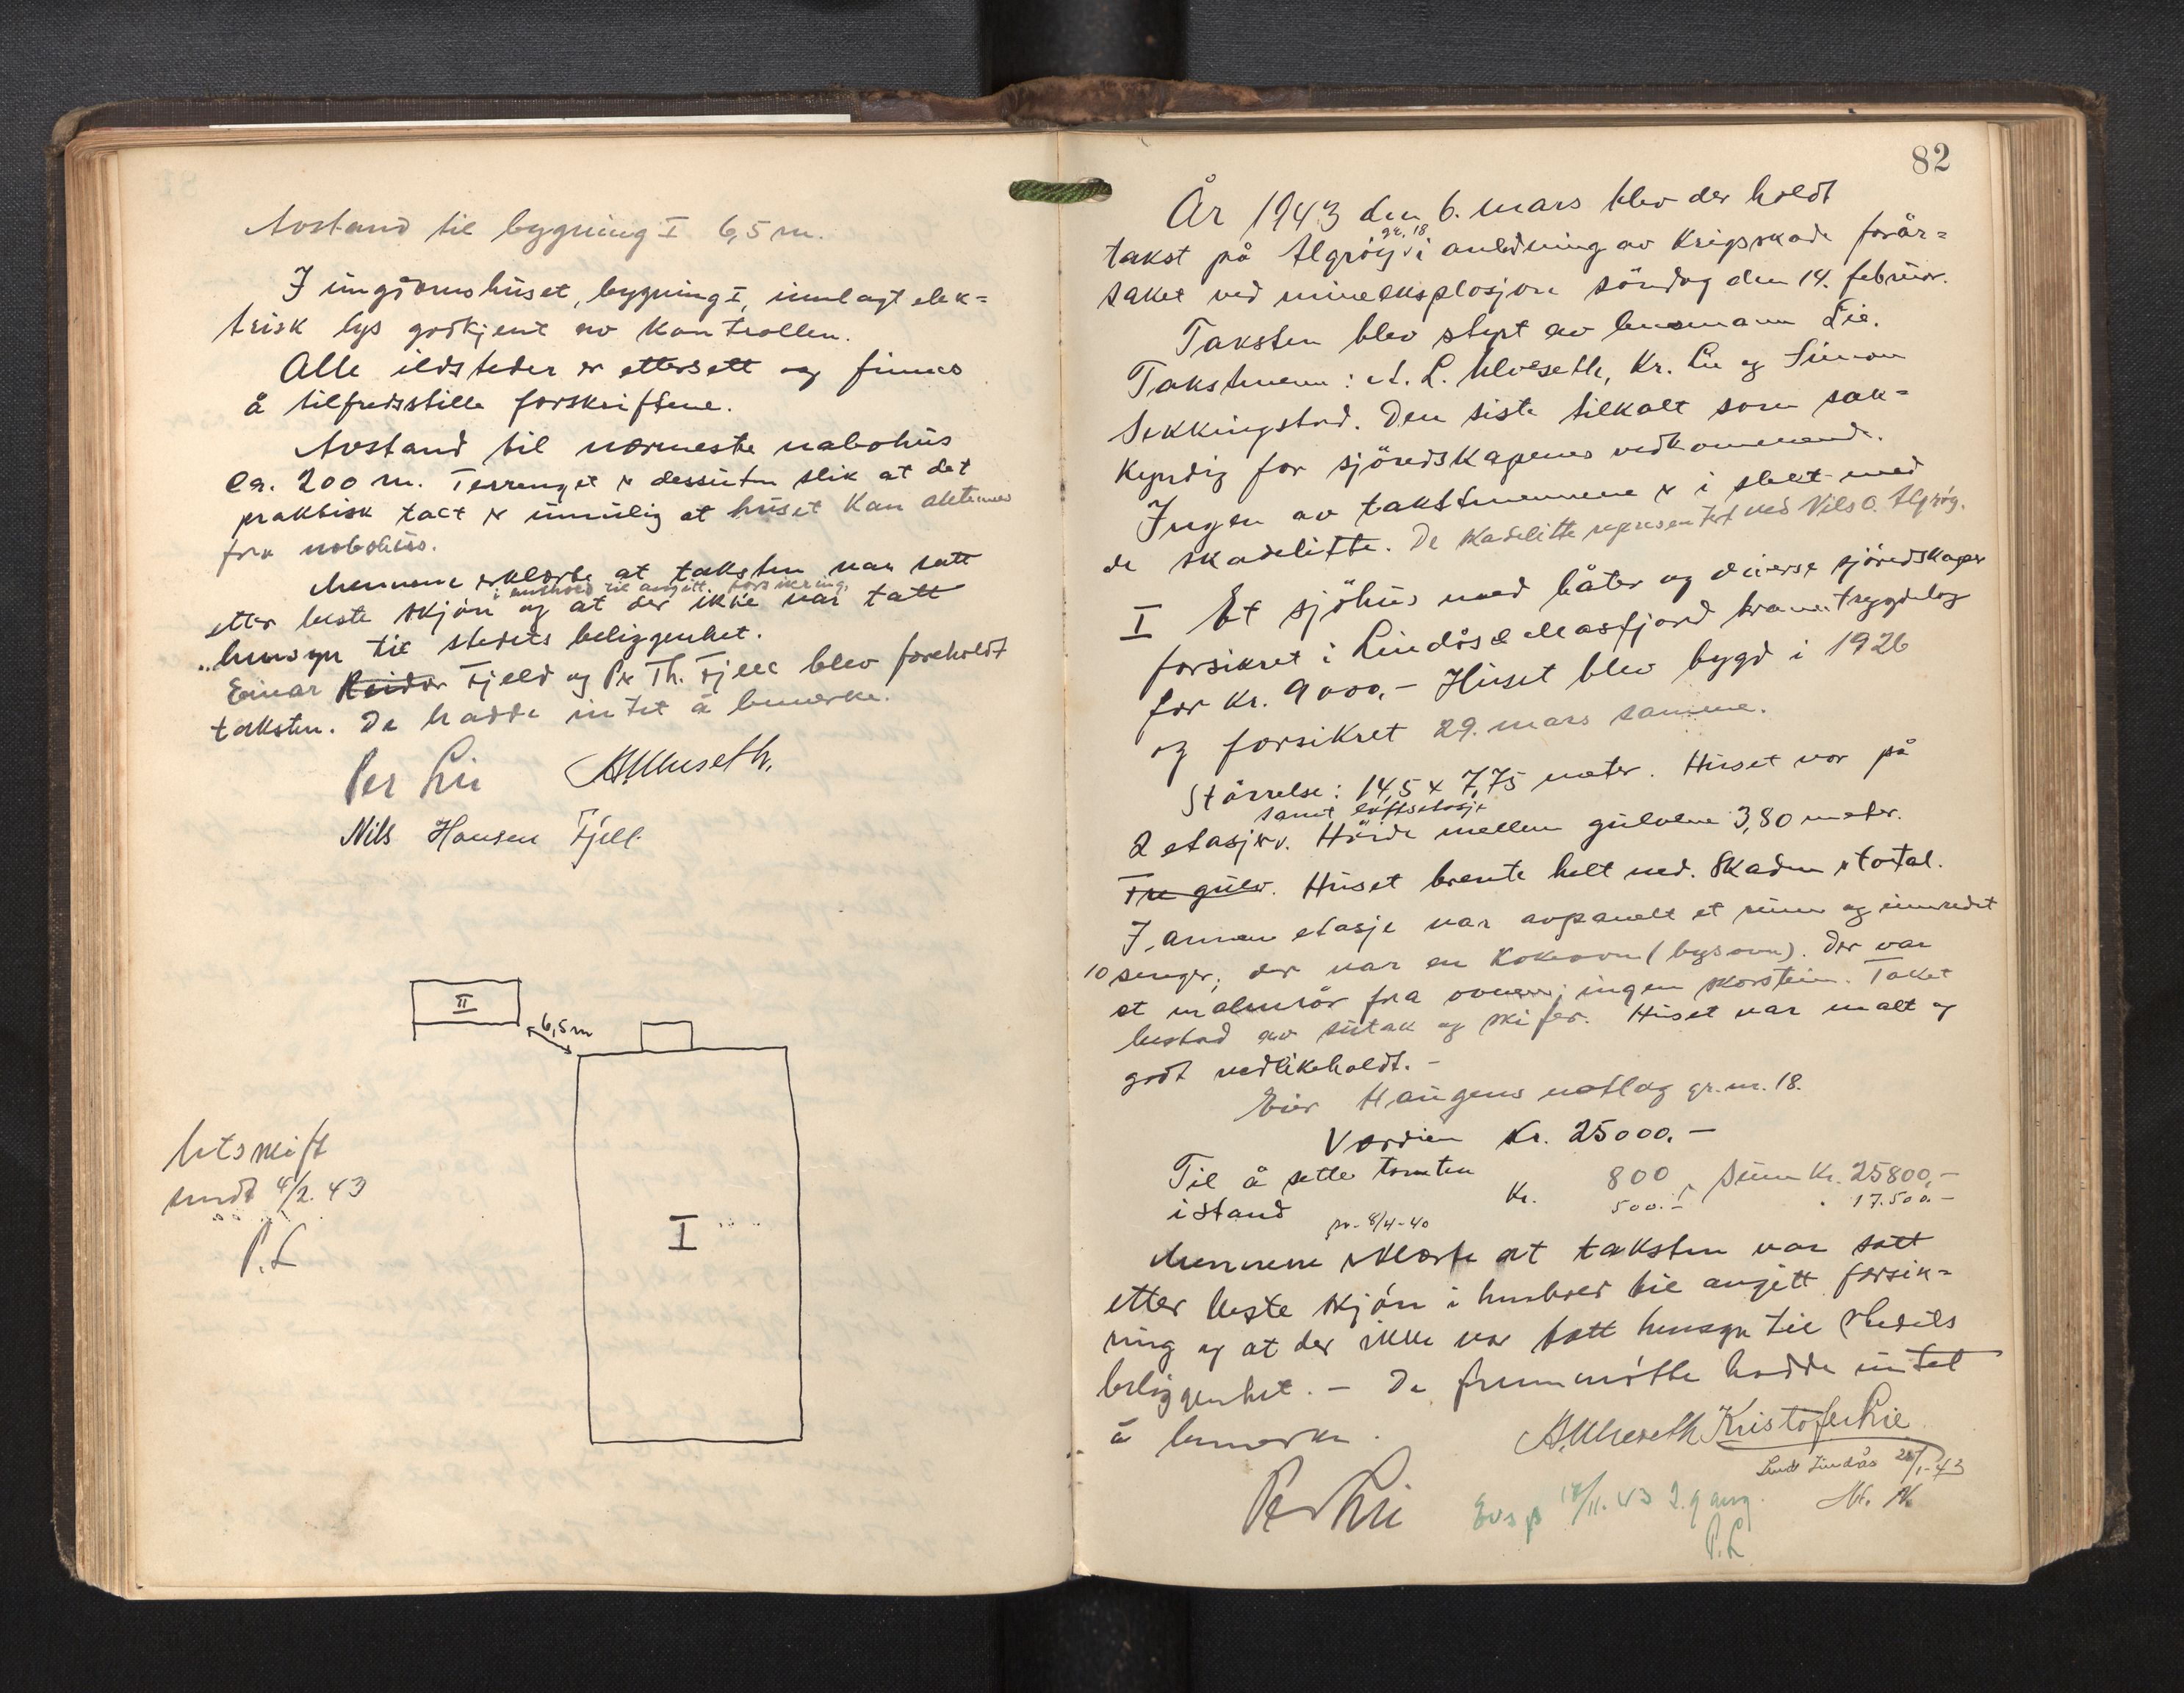 Avstand til bygning I 6,5 m.
I ungdomshuset, bygning I, innlagt elek=
trisk lys godkjent av kontrollen.
Alle ildsteder er ettersett og finnes
å tilfredsstille forskriftene.
Avstand til nærmeste nabohus
ca. 200 m. Terrenget er dessuten slik at det
praktisk talt er umulig at huset kan antennes
fra nabohus.
Mennene erklærte at taksten var satt
i henhold til angitt forsikring,
etter beste skjøn og at der ikke var tatt
hensyn til stedets beliggenhet.
Einar Reidar Fjeld og Per Th. Fjell blev foreholdt
taksten. De hadde intet å bemerke.
Per Lie A. Ulveseth.
Nils Hansen Fjell.
II
6,5 m
I
Utskrift
sendt 4/2. 43
P. L
82
År 1943 den 6. mars blev der holdt
gr. 18
takst på Algrøy i anledning av krigsskade forår=
saket ved mineeksplosjon söndag den 14. februar.
Taksten blev styrt av lensmann Lie.
Takstmenn: A. L. Ulveseth, Kr. Lie og Simon
Sekkingstad. Den siste tilkalt som sak=
kyndig for sjöredskapenes vedkommende.
Ingen av takstmennene er i slekt med
de skadelitte. De skadelitte representert ved Nils O. Algrøy.
I Et sjöhus med båter og diverse sjöredskaper
forsikret i Lindås & Masfjord branntrygdelag
for kr. 9000,- Huset blev bygd i 1926
og forsikret 29. mars samme.
Störrelse: 14,5 x 7,75 meter. Huset var på
samt loftsetasje
2 etasjer. Höide mellem gulvene 3,80 meter.
Tre gulv. Huset brente helt ned. Skaden er total.
I annen etasje var avpanelt et rum og innredet
10 senger; der var en kokeovn (bysovn). Der var
et malmrör fra ovnen; ingen skorstein. Taket
bestod av sutak og skifer. Huset var malt og
godt vedlikeholdt. -
Eier Haugens notlag gr. nr. 18.
Verdien Kr. 25000.-
Til å sette tomten
istand Kr. 800 Sum Kr. 25800,-
pr. 8/4-40 500.- 17.500.-
Mennene erklærte at taksten var satt
etter beste skjön i henhold til angitt forsik=
ring og at der ikke var tatt hensyn til stedets
beliggenhet. - De fremmötte hadde intet
å bemerke.
A. Ulveseth Kristofer Lie
Per Lie
Sendt Lindås
2. gang.
P. L